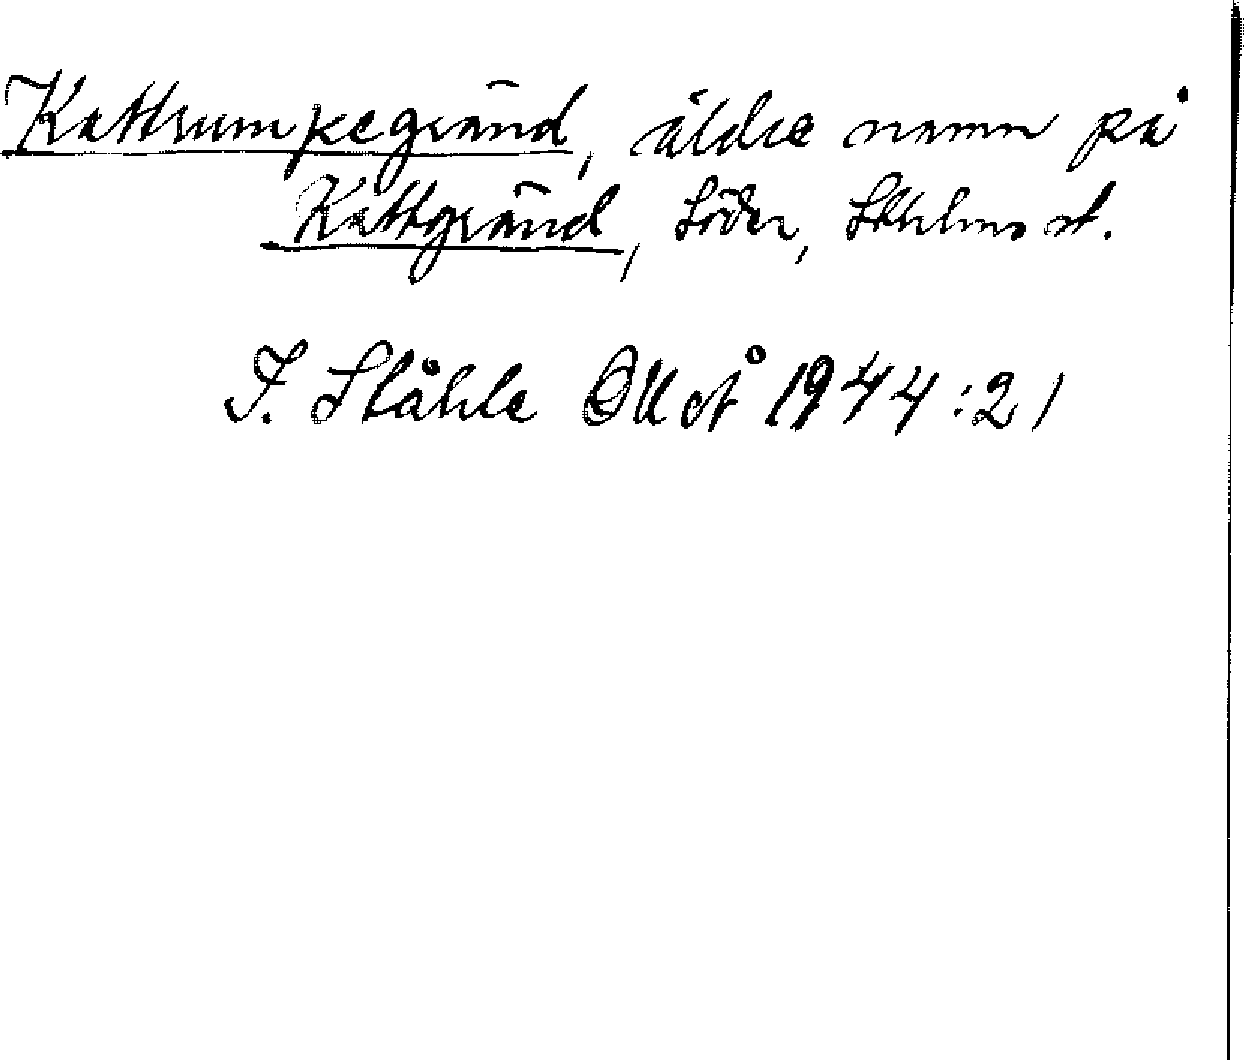 Kattrumpegränd, äldre namn på
Kattgränd, Söder, Sthlms st.
I. Ståhle 1944:21